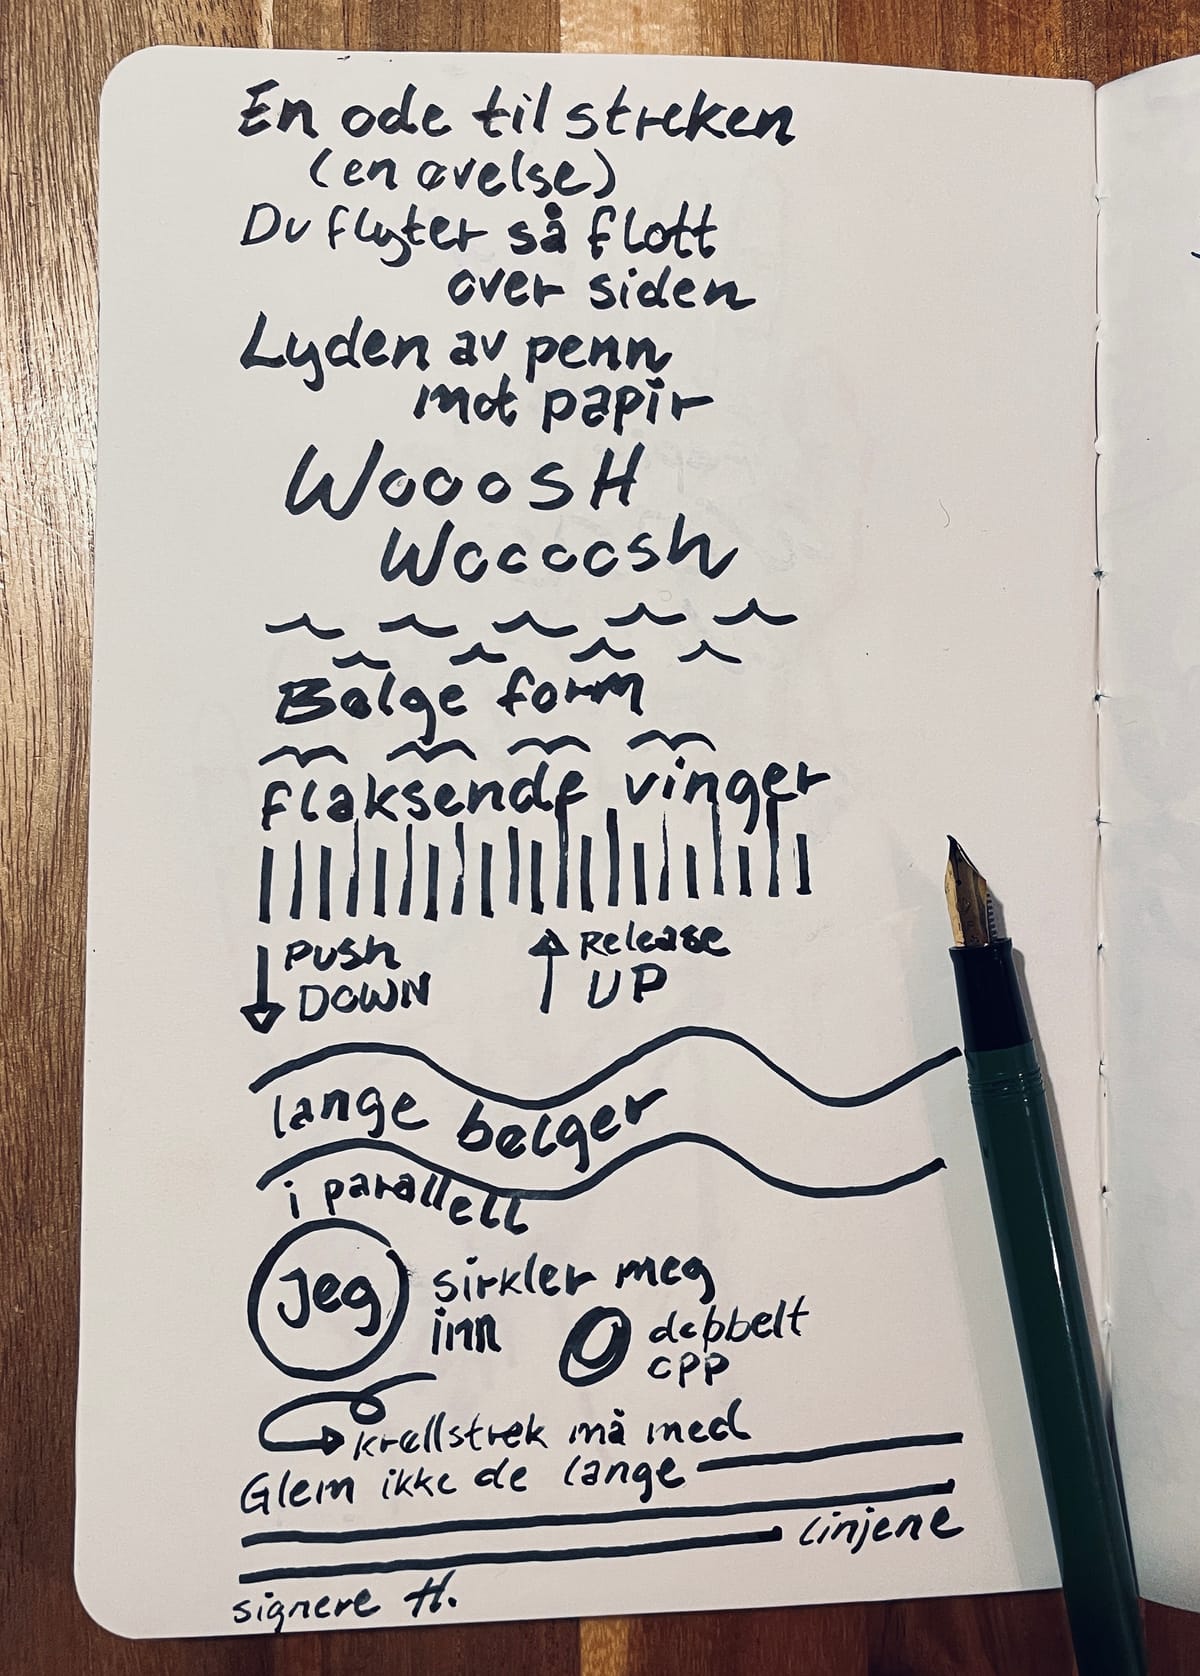 En ode til streken
(en øvelse)
Du flyter så flott
over siden
Lyden av penn
mot papir
WoooSH
Woooosh
Bølge form
flaksende vinger
PUSH
DOWN
Release
UP
lange bølger
i parallell
Jeg
sirkler meg
inn
dobbelt
opp
krøllstrek må med
Glem ikke de lange
linjene
signere H.